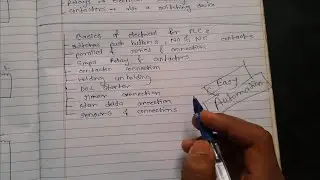 Relays → electrical
contactors → not a switching
Basics of electrical for PLC :
switches push buttons, NO & NC contacts
parallel & series connection
Simple Relay & contactors
contactor connection
holding unholding
DOL Starter
timer connection
Star delta connection
sensors & connections
Easy
Automation